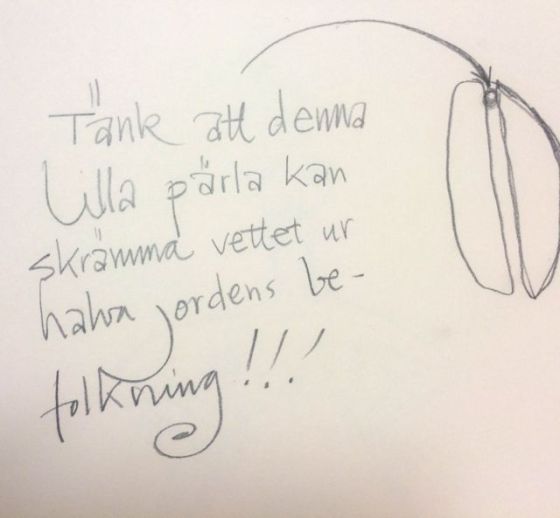 Tänk att denna
lilla pärla kan
skrämma vettet ur
halva jordens be-
folkning!!!